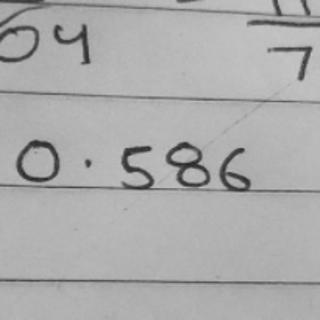 04 7
0.586